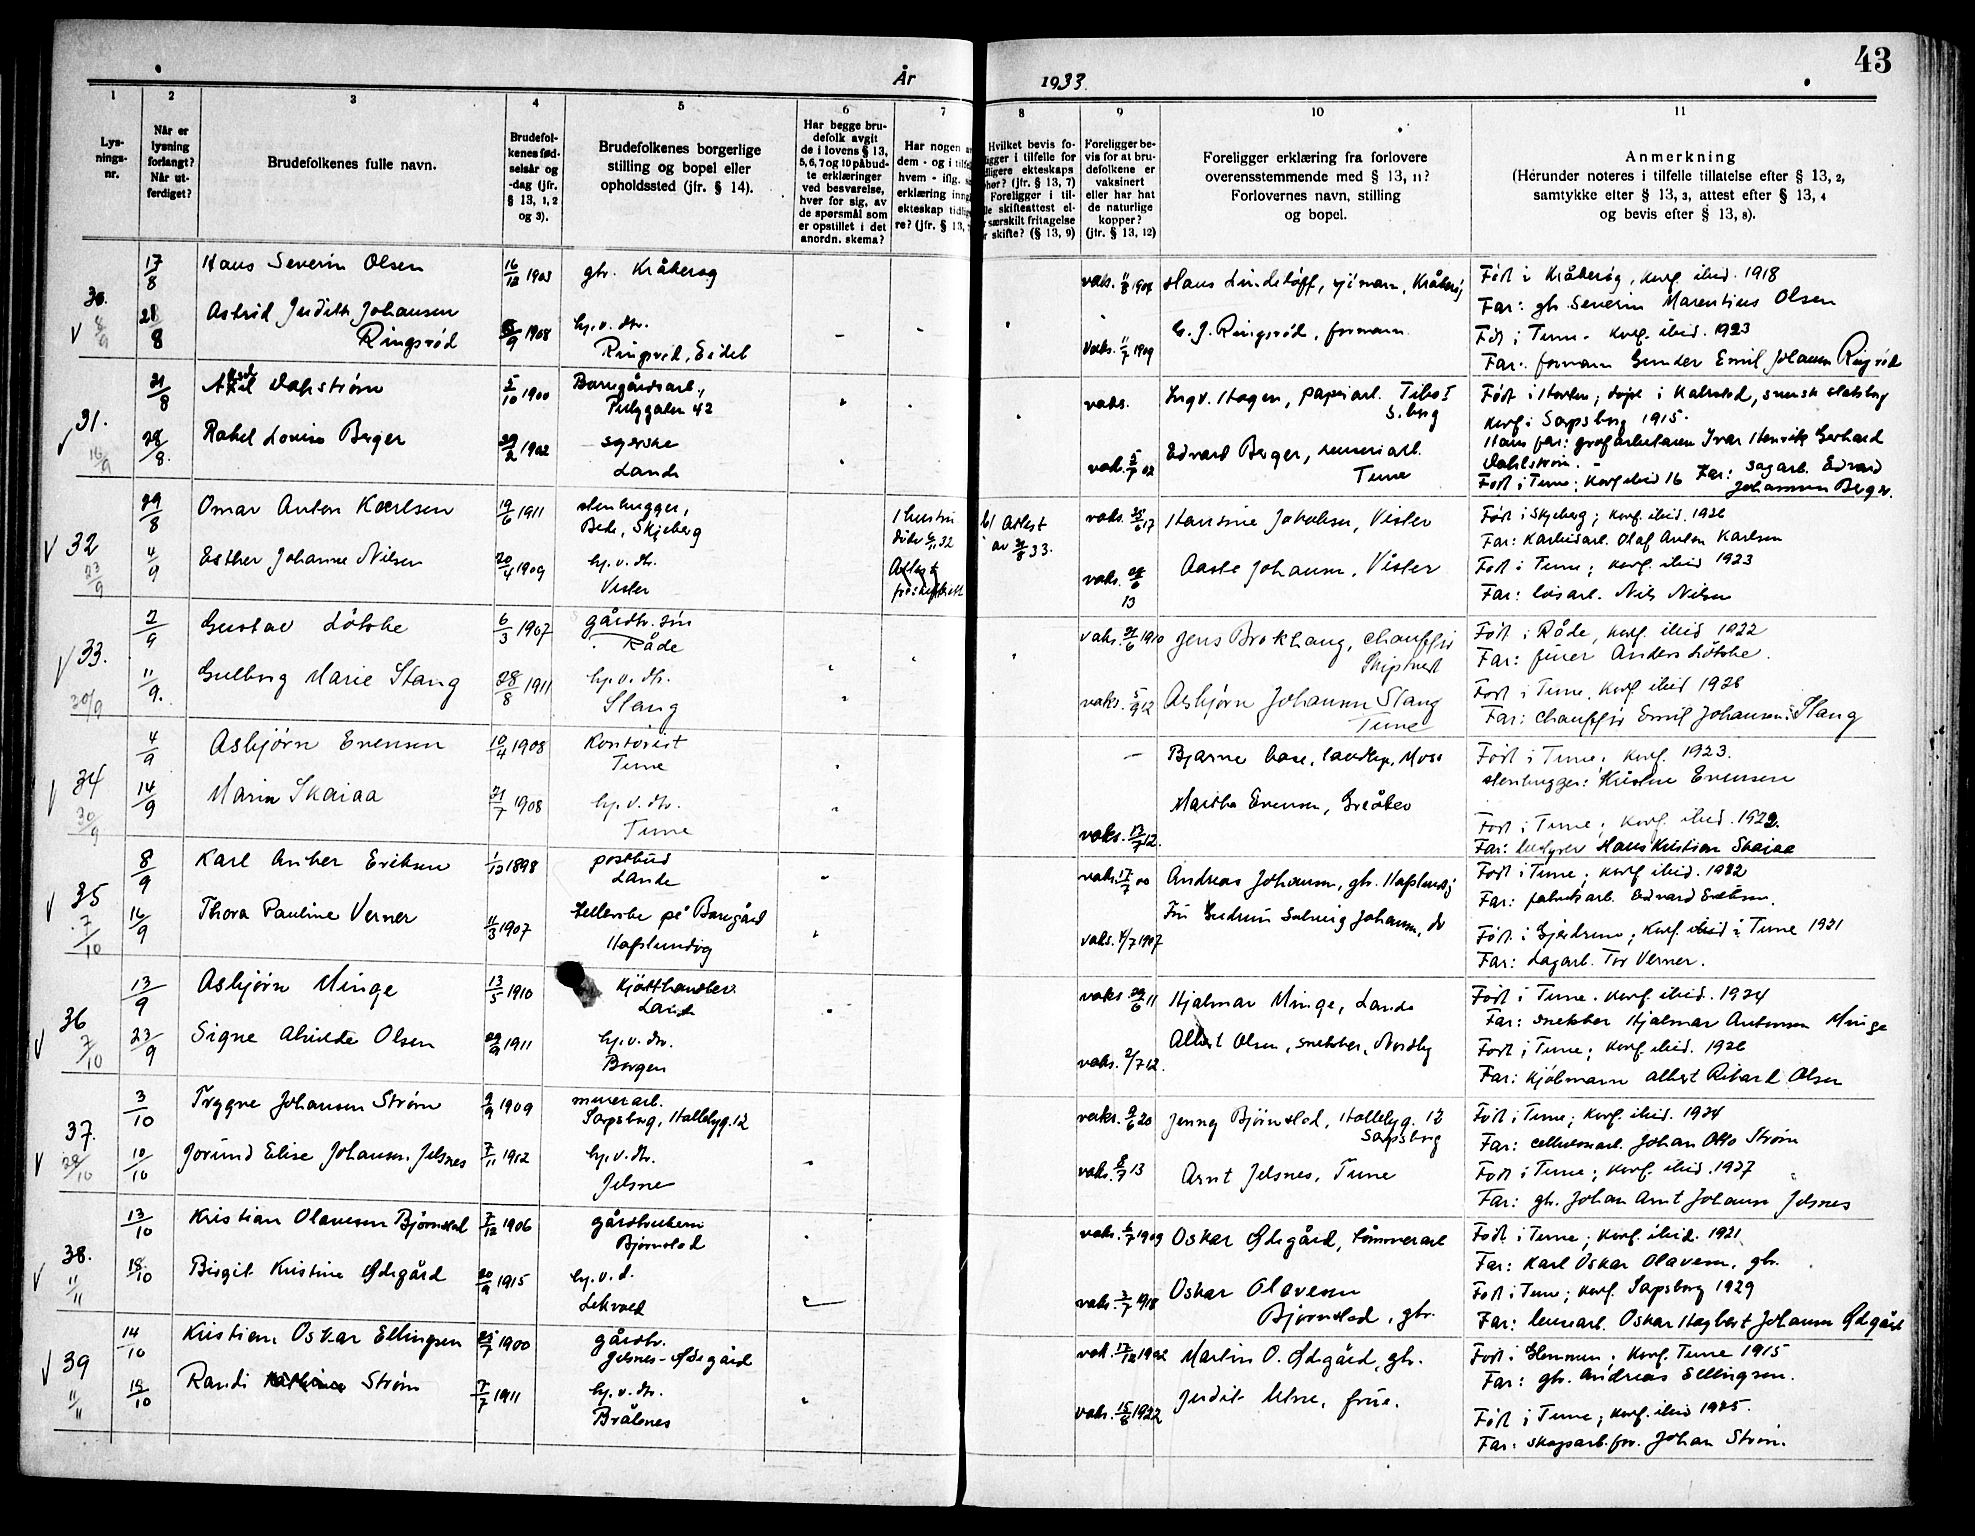 43
År 1933.
1 2 3 4 5 6 7 8 9 10 11
Lys-
nings-
nr.
Når er
lysning
forlangt?
Når ut-
ferdiget?
Brudefolkenes fulle navn.
Brudefol-
kenes fød-
selsår og
-dag (jfr.
§ 13, 1, 2
og 3).
Brudefolkenes borgerlige
stilling og bopel eller
opholdssted (jfr. § 14).
Har begge bru-
defolk avgit
de i lovens § 13,
5, 6, 7 og 10 påbud-
te erklæringer
ved besvarelse,
hver for sig, av
de spørsmål som
er opstillet i det
anordn. skema?
Har nogen
dem - og i
hvem - iflg.
erklæring
ekteskap
re? (jfr. § 13,
Hvilket bevis fo-
i tilfelle for
ekteskaps
(jfr. § 13, 7)
Foreligger i til-
skifteattest el-
særskilt fritagelse
skifte? (§ 13, 9)
Foreligger be-
vis for at bru-
defolkene er
vaksinert
eller har hat
de naturlige
kopper?
(jfr. § 13, 12)
Foreligger erklæring fra forlovere
overensstemmende med § 13, 11?
Forlovernes navn, stilling
og bopel.
Anmerkning
(Herunder noteres i tilfelle tillatelse efter § 13, 2,
samtykke efter § 13, 3, attest efter § 13, 4
og bevis efter § 13, 8).
30. 8/9
17/8 Hans Severin Olsen 16/12 1903 gbr. Kråkerøy vaks. 11/8 1904 Hans Lindeløff, Kråkerøy
Født i Kråkerøy, konf. ibid. 1918
Far: gb. Severin Marentius Olsen
28/8 Astrid Judith Johansen
Ringsrød 1908 hj.v. dtr.
Ringsrød, Eidet
vaks. 11/7 1909 G. J. Ringsrød, formann
Født i Tune. konf. ibid. 1923
Far: formann Gunder Emil Johansen Ringsrød
31. 16/9
21/8 Aksel Dahlstrøm 5/10 1900 Borregårdsarb.,
42
vaks. Ingv. Hagen, papirarb.
S.borg
Født i Horten; døpt i svensk statsborg
konf. i Sarpsborg 1915.
Hans far: grofarbetaren Ivar Henrik Gerhard
Dahlstrøm.
28/8. Rakel Lovise Berger 29/2 1902 syerske
Lande
vaks. 5/7 02 Edvard Berger,
Tune
Født i Tune; konf ibid 16 Far: sagarb. Edvard
Johannsen Berger.
V 32 23/9
29/8 Omar Anton Karlsen 19/6 1911 stenhugger,
Bede, Skjeberg
1 hustru
32
b/ Attest
av 31/8 33.
vaks. 17 Hansine Jakobsen, Vister
Født i Skjeberg; konf. ibid. 1926
Far: Karbidarb. Olaf Anton Karlsen
4/9 Esther Johanne Nilsen 20/4 1909 hj.v. dtr.
Vister
Attest
vaks. 28/6 13 Aasta Johansen, Vister
Født i Tune; konf ibid 1923
Far: løsarb. Nils Nilsen
V 33. 30/9
2/9 Gustav Løkke 6/3 1907 gårdbr. søn
Råde
vaks. 1910 Jens Brokhaug, chauffør
Skiptvet
Født i Råde, konf. ibid 1922
Far: Anders Løkke.
11/9. Gulborg Marie Stang 28/8 1911 hj.v. dtr.
Stang
vaks. 5/9 12 Asbjørn Johansen Stang
Tune
Født i Tune, konf ibid 1926
Far: chauffør Emil Johansen Stang
V 34 30/9
4/9 Asbjørn Evensen 10/4 1908 Kontorist
Tune
— Bjarne Moss
Født i Tune, konf. 1923.
stenhugger: Kristen Evensen
14/9 Maria Skaiaa 21/7 1908 hj.v. dtr.
Tune
vaks. 12. Martha Evensen, Greåker
Født i Tune; konf. ibid. 1922.
Far: Hans Kristian Skaiaa
V 35 7/10
8/9 Karl Anker Eriksen 1/12 1898 postbud
Lande
vaks. 17/7 00 Andreas Johansen, gb. Hafslundsj
Født i Tune; konf ibid. 1912
Far: fabrikarb. Edvard Eriksen.
16/9 Thora Pauline Verner 11/3 1907 på Borregård
Hafslundsøy
vaks. 4/7 1907 Fru Gudrun Solveig Johansen, do
Født i Gjerdrum; konf. i Tune 1921
Far: dagarb. Tor Verner.
V 36 7/10
13/9 Asbjørn Minge 13/5 1910 kjøtthandler
Lande
vaks 29/6 11 Hjalmar Minge, Lande
Født i Tune. konf. ibid. 1924
Far: snekker Hjalmar Antonsen Minge
23/9 Signe Alvilde Olsen 29/9 1911 hj.v. dtr.
Borgen
vaks. 2/7 12. Albert Olsen, snekker, Nordby
Født i Tune; konf. ibid. 1926
Far: kjølmann Albert Rikard Olsen
V 37. 28/10
3/10 Trygve Johansen Strøm 9/9 1909 murerarb.
Sarpsborg, Hallebyg. 12
vaks. 9/6 20 Jenny Bjørnstad, Hallebyg. 12
Sarpsborg
Født i Tune; konf. ibid. 1924
Far: cellulosearb. Johan Otto Strøm
10/10 Jorund Elise Johansen Jelsnes 7/11 1912 hj.v. dtr.
Jelsnes
vaks. 8/7 13 Arnt Jelsnes, Tune
Født i Tune; konf ibid. 1927
Far: gb. Johan Arnt Johansen Jelsnes
V 38. 11/11
13/10 Kristian Olavesen Bjørnstad 7/12 1906 gårdbruker
Bjørnstad
vaks. 6/7 1909 Oskar Ødegård, tømmerarb
Født i Tune; konf. ibid. 1921
Far: Karl Oskar Olavesen, gbr.
18/10 Birgit Kristine Ødegård 20/9 1915 hj.v.d.
Lekvold
vaks. 3/7 1918 Oskar Olavesen
Bjørnstad, gbr.
Født i Tune; konf. Sarpsborg 1929
Far: Oskar Hagbart Johansen Ødegård
V 39 11/11
14/10 Kristian Oskar Ellingsen 25/7 1900 gårdbr.
Jelsnes-Ødegård
vak. 17/12 1902 Martin O. Ødegård, gbr.
Født i Glemmen; konf. Tune 1915
Far: gb. Andreas Ellingsen.
18/10 Randi Strøm 7/7 1911 hj.v. dtr.
Brålsnes
vaks. 15/6 1922 Judit frue.
Født i Tune; konf. ibid 1925.
Far: skogsarb.for. Johan Strøm.